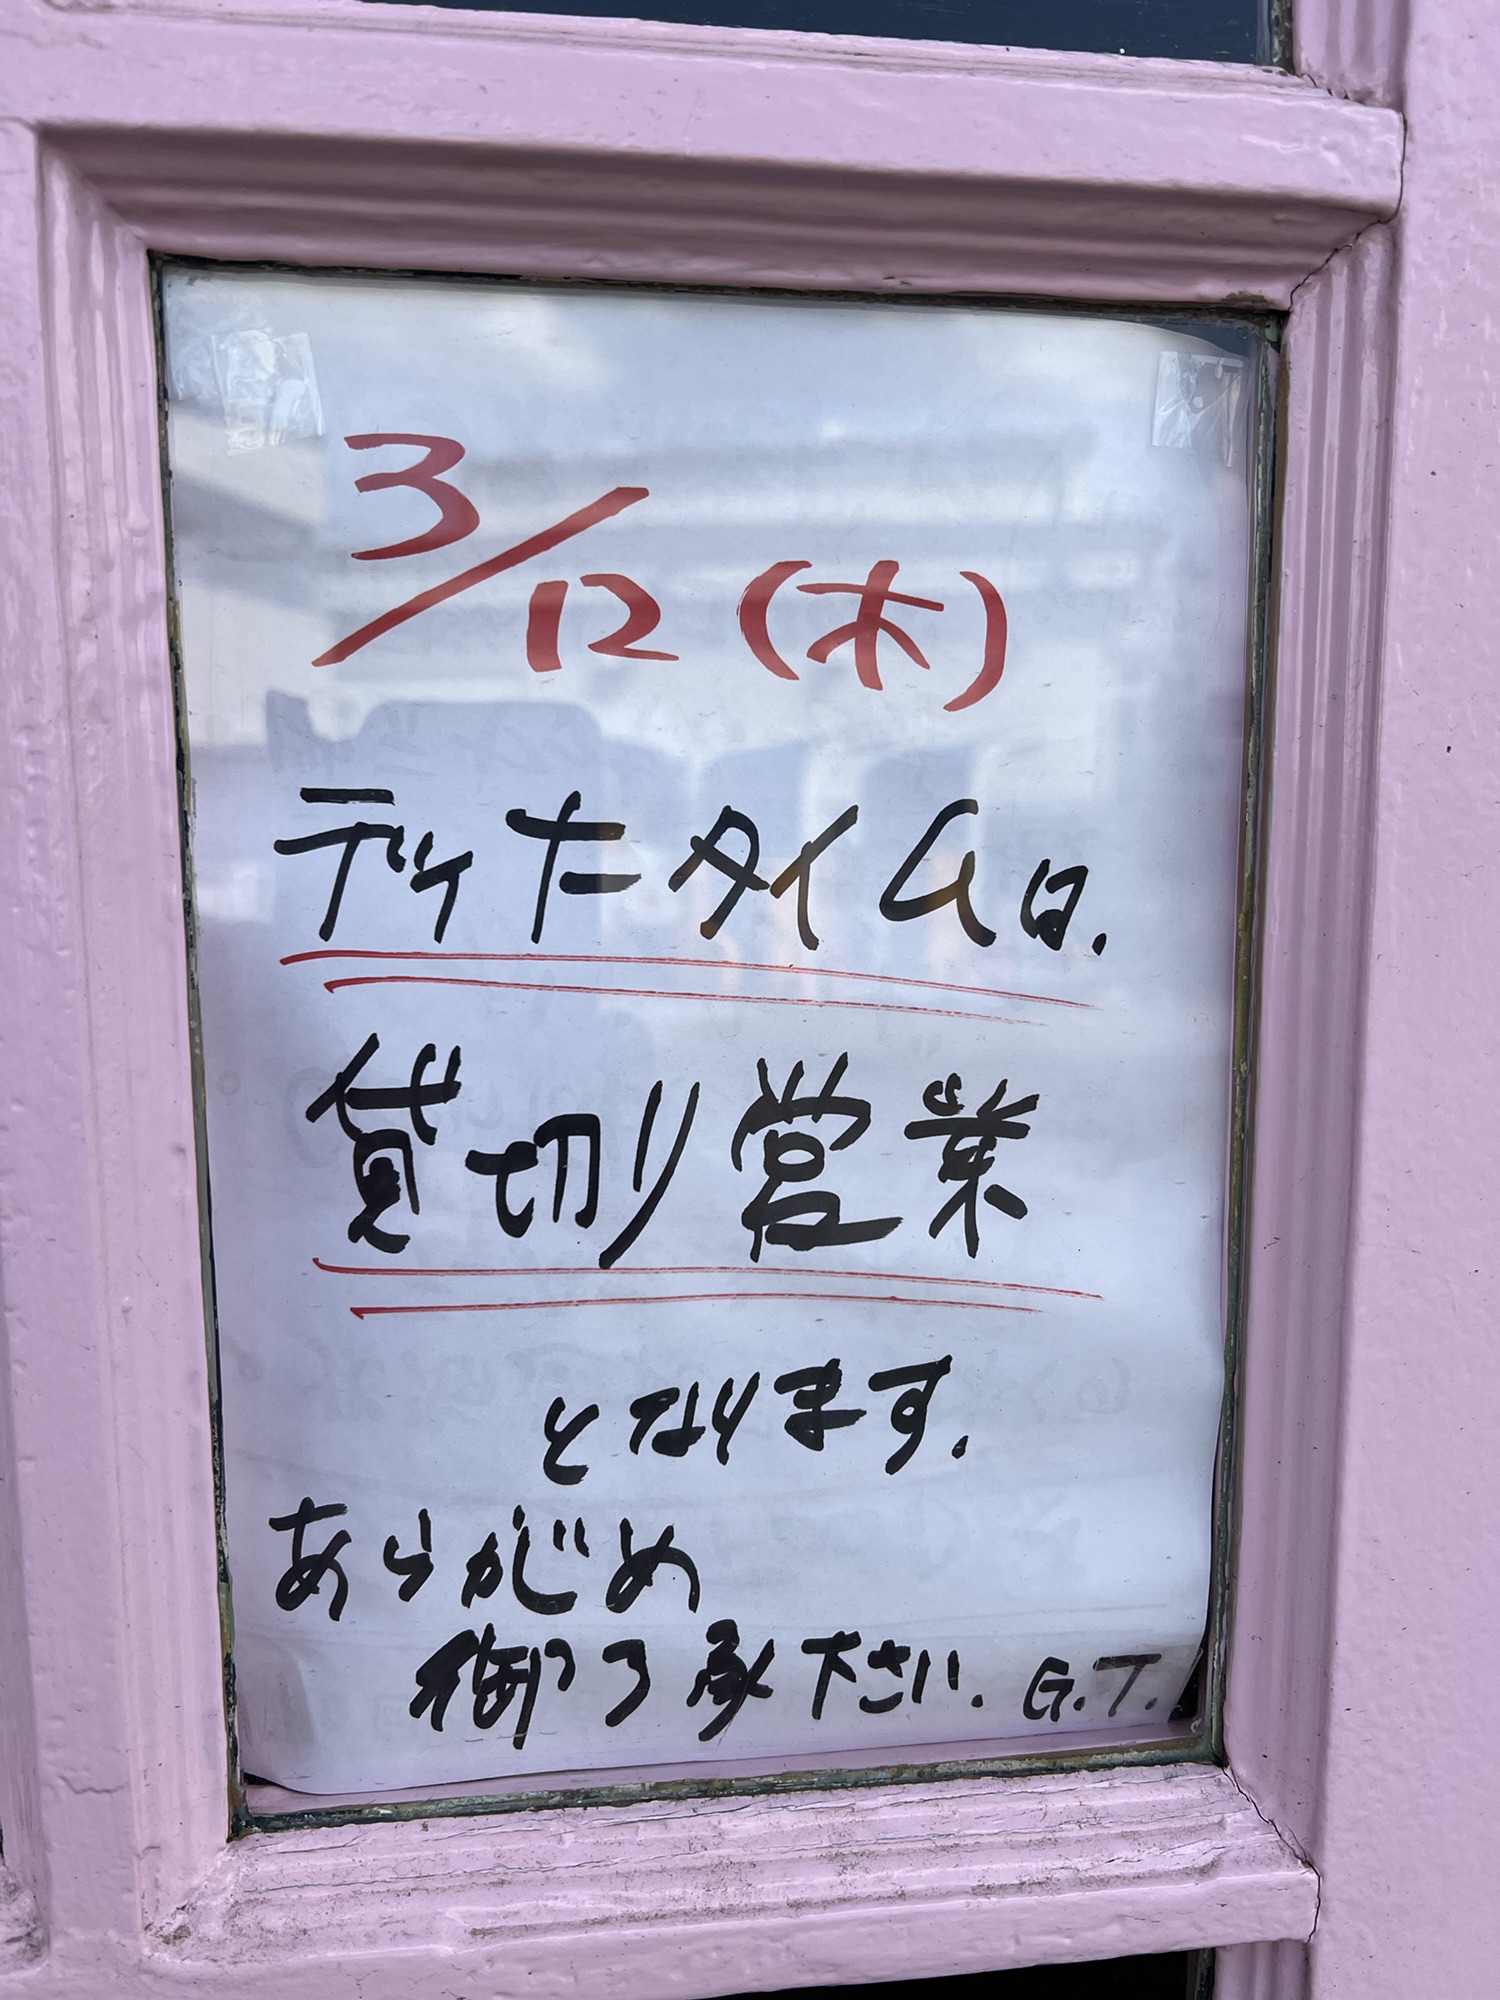 3/12(木)
ディナータイムは.
貸切り営業
となります.
あらかじめ
御了承下さい. G.T.